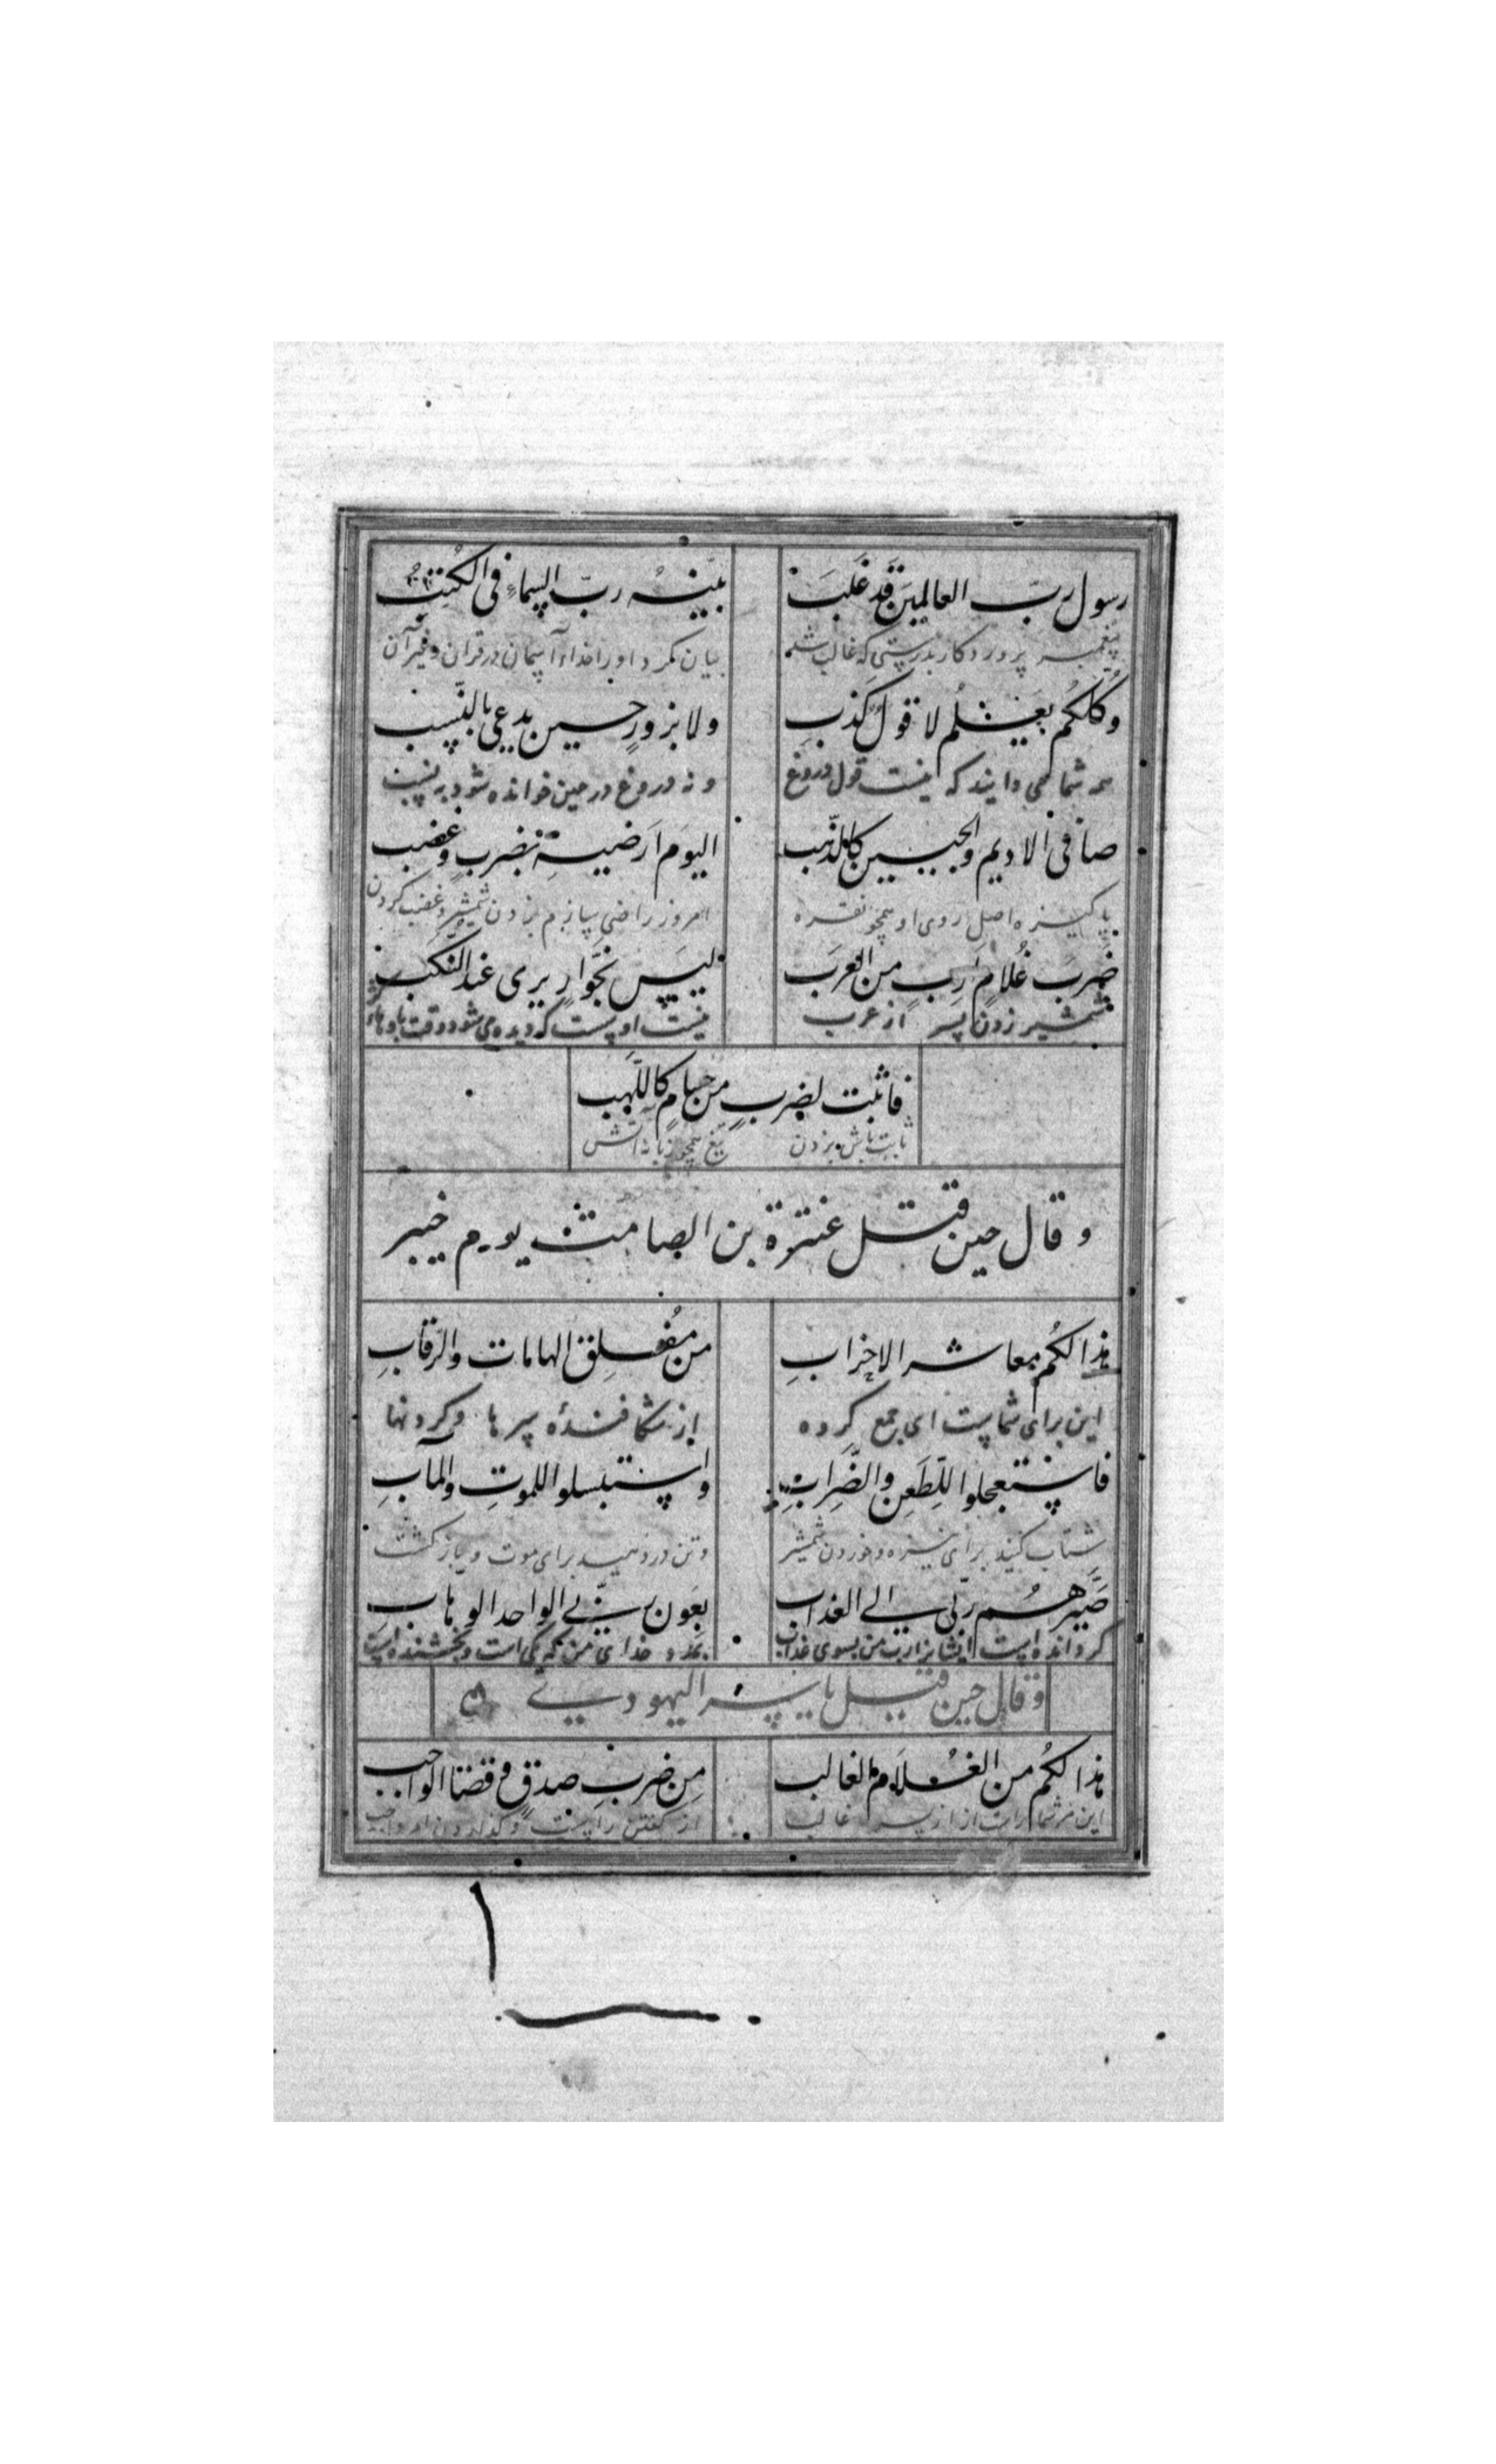 رسول ربّ العالمين قد غلب بيّنه ربّ السماء في الكتب
پيغمبر پروردكار بدرستى كه غالب شد بيان كرد او را خداء آسمان در قران و غير آن
وكلّكم يعلم لا قول كذب ولا بزور حين يدعى بالنّسب
همه شما مى دانيد كه نيست قول دروغ و نه دروغ در حين خوانده شود بر نسب
صافى الاديم والجبين كالذّهب اليوم ارضيه بضرب وغضب
پاكيزه اصل روى او همچو نقره امروز راضى سازم بزدن شمشير و غضب كردن
ضرب غُلام أرب من العرب ليس بخوّار يرى عند النكب
شمشير زدن پسر از عرب نيست او سست كه ديده مى شود وقت
فاثبت لضرب من حسام كاللّهب
ثابت باش بزدن تيغ همچو زبانه آتش
و قال حين قتل عنترة بن الصامت يوم خيبر
هذا لكُم معاشر الاحزابِ من مُفلِق الهامات والرّقابِ
اين براى شماست اى جمع كرده از شكافندهٔ سرها و كردنها
فاستعجلوا للطّعن والضّرابِ واستبسلوا للموتِ والمآبِ
شتاب كنيد براى نيزه و خوردن شمشير و تن در دهيد براى موت و باز كشت
صَيّرهُم ربّى الى العذاب بعون ربّى الواحد الوهاب
كردانده است ايشانرا رب من بسوى عذاب بمدد خداى من كه يكى است و بخشنده است
و قال حين قتل ياسر اليهودى
هذا لكُم من الغُلام الغالب من ضرب صدق وقضا الواجب
اين مر شما راست از پسر غالب از كفتن راست و كذاردن امر واجب